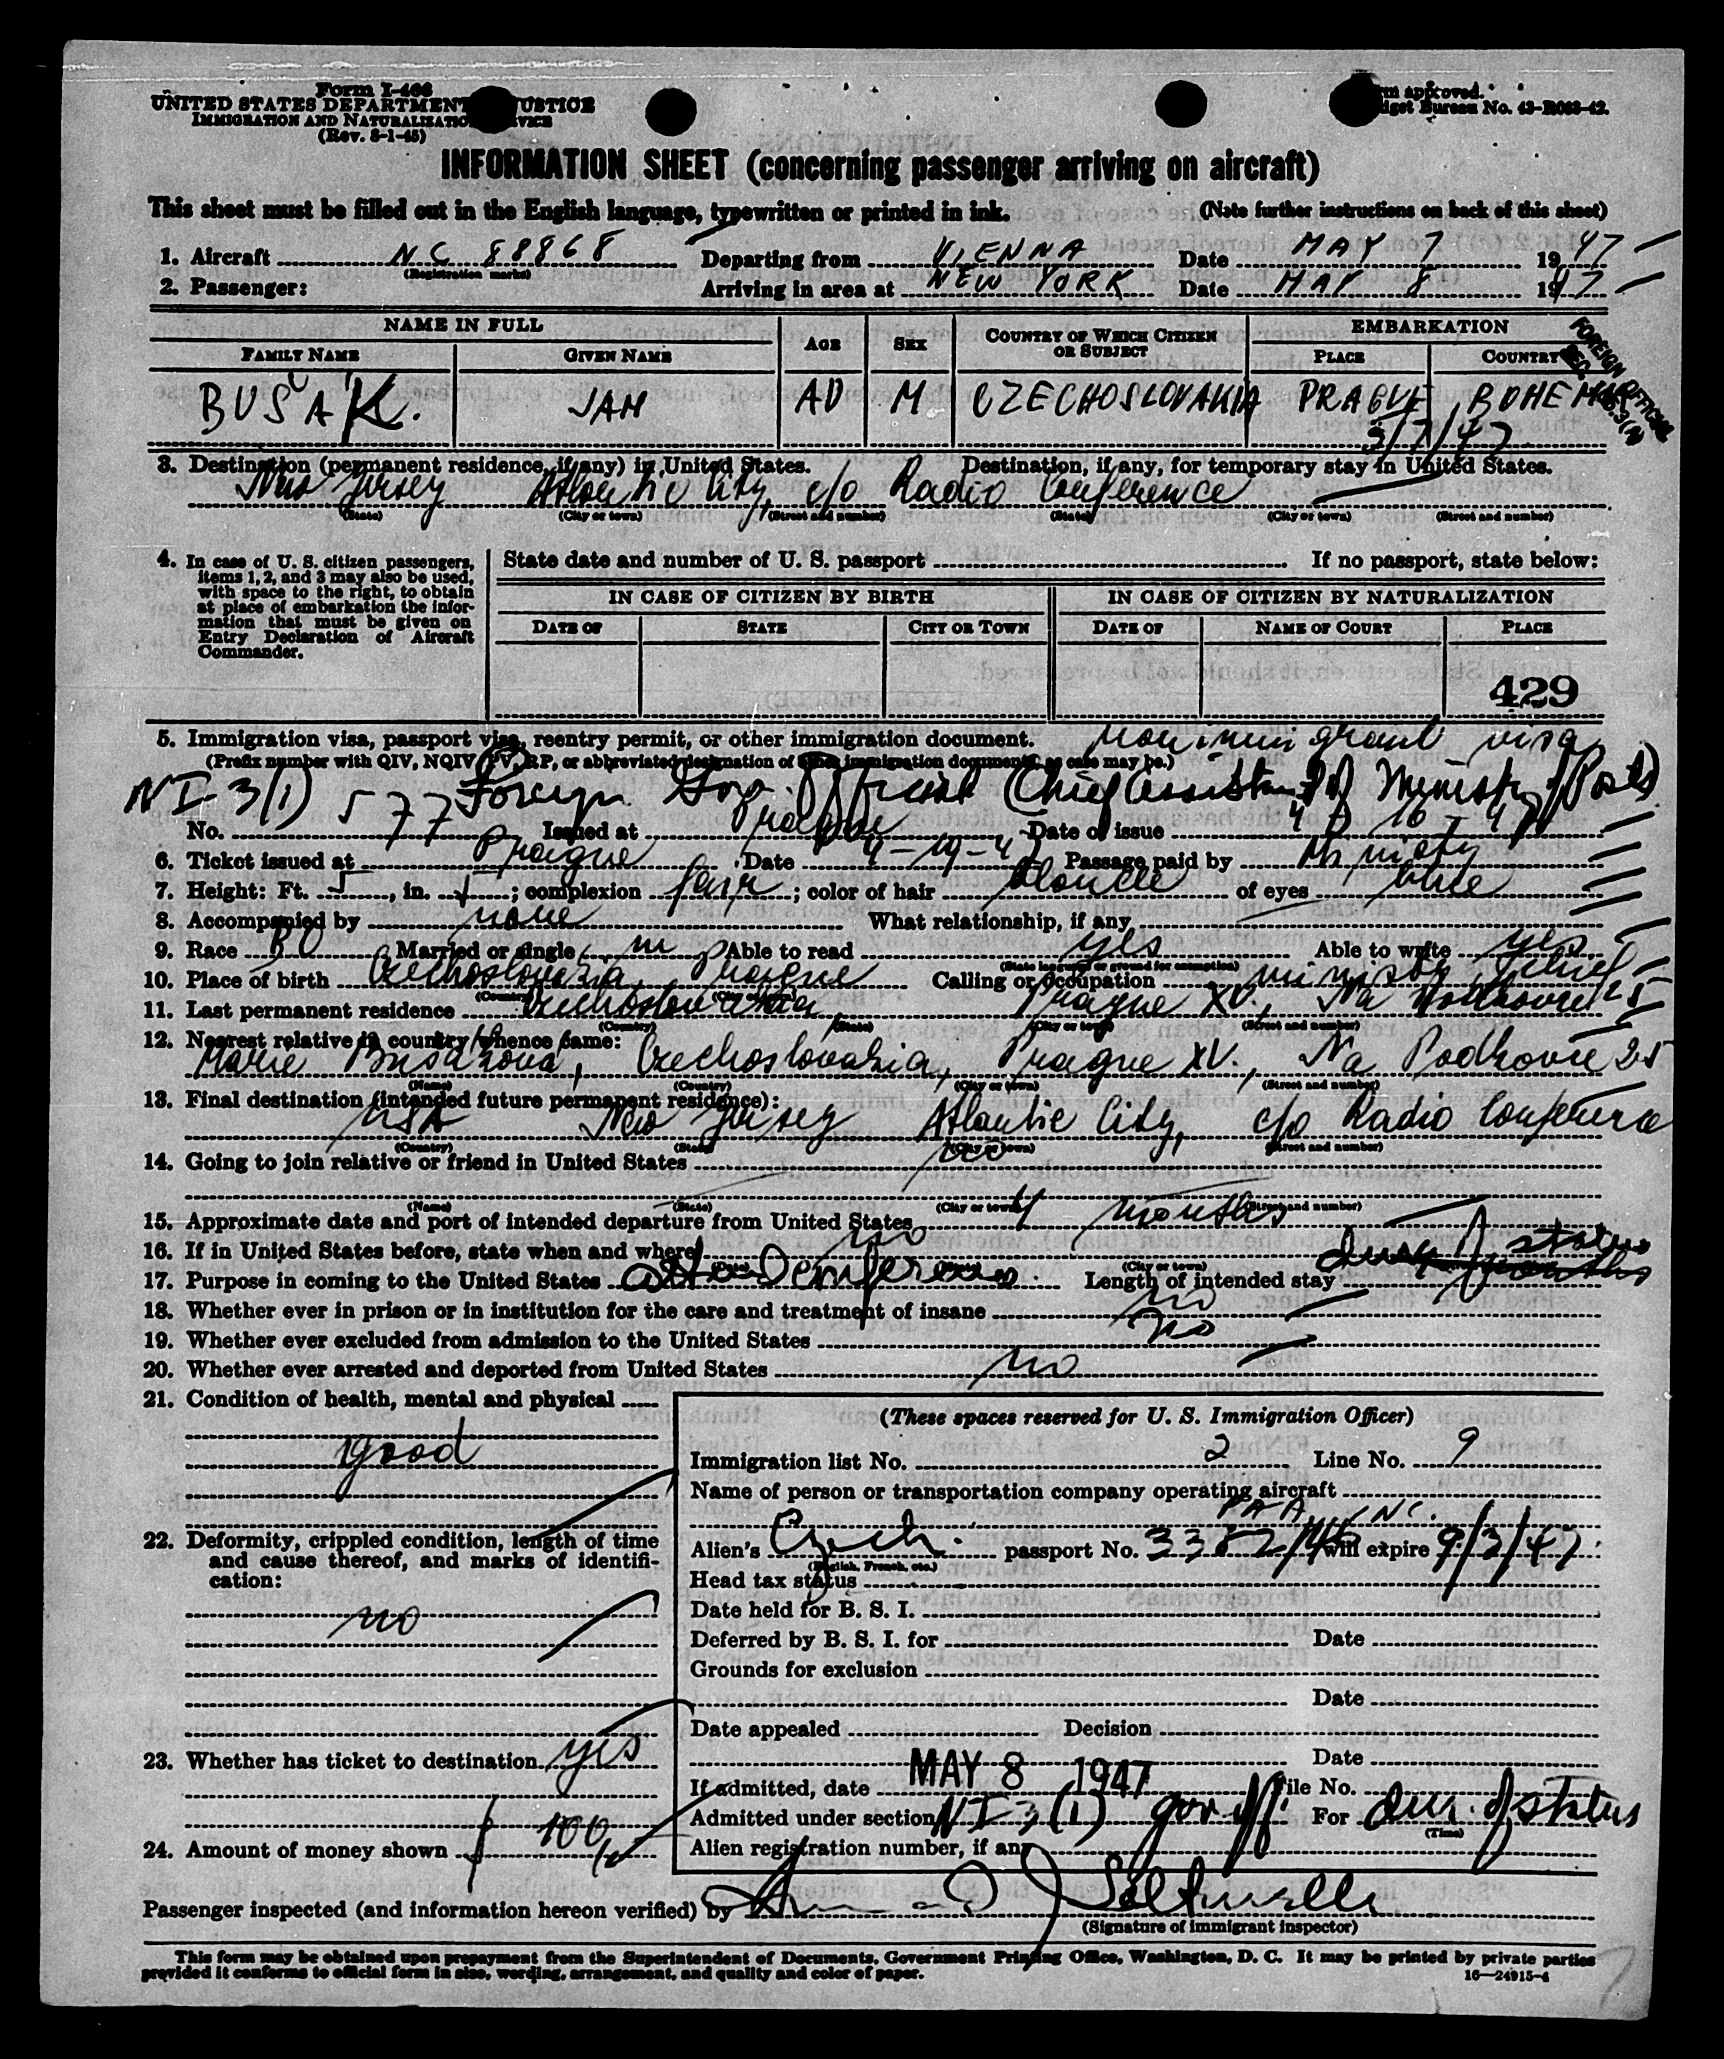 Form I-466
UNITED STATES DEPARTMENT JUSTICE
IMMIGRATION AND NATURALIZATION SERVICE
(Rev. 8-1-45)
Form approved.
Budget Bureau No. 43-R063-42.
INFORMATION SHEET (concerning passenger arriving on aircraft)
This sheet must be filled out in the English language, typewritten or printed in ink. (Note further instructions on back of this sheet)
1. Aircraft NC 88868 Departing from VIENNA Date MAY 7 1947
(Registration marks)
2. Passenger: Arriving in area at NEW YORK Date MAY 8 1947
NAME IN FULL AGE SEX COUNTRY OF WHICH CITIZEN OR SUBJECT EMBARKATION
FAMILY NAME GIVEN NAME PLACE COUNTRY
FOREIGN OFFICIAL
SEC. 3(1)
BUŠÁK. JAN AD M CZECHOSLOVAKIA PRAGUE BOHEMIA
5/7/47
3. Destination (permanent residence, if any) in United States. Destination, if any, for temporary stay in United States.
New Jersey Atlantic City, c/o Radio Conference
(State) (City or town) (Street and number) (State) (City or town) (Street and number)
4. In case of U. S. citizen passengers, items 1, 2, and 3 may also be used, with space to the right, to obtain at place of embarkation the information that must be given on Entry Declaration of Aircraft Commander.
State date and number of U. S. passport If no passport, state below:
IN CASE OF CITIZEN BY BIRTH IN CASE OF CITIZEN BY NATURALIZATION
DATE OF STATE CITY OR TOWN DATE OF NAME OF COURT PLACE
429
5. Immigration visa, passport visa, reentry permit, or other immigration document. nonimmigrant visa
(Prefix number with QIV, NQIV, PV, RP, or abbreviated designation of other immigration document, as case may be.)
NI-3(1) 577 Foreign Gov. Official (Chief Assistant of Ministry of Posts)
No. Issued at Prague Date of issue 4-16-47
6. Ticket issued at Prague Date 4-19-47 Passage paid by Ministry
7. Height: Ft. 5, in. ; complexion fair; color of hair blonde of eyes blue
8. Accompanied by none What relationship, if any
9. Race BO Married or single m Able to read yes Able to write yes
(State language or ground for exemption)
10. Place of birth Czechoslovakia, Prague Calling or occupation ministry
(Country) (City or town)
11. Last permanent residence Czechoslovakia, Prague XV., Na Podhovre 25
(Country) (State) (City or town) (Street and number)
12. Nearest relative in country whence came:
Marie Busakova, Czechoslovakia, Prague XV., Na Podhovre 25
(Name) (Country) (City or town) (Street and number)
13. Final destination (intended future permanent residence):
USA New Jersey Atlantic City, c/o Radio Conference
(Country) (State) (City or town) (Street and number)
14. Going to join relative or friend in United States no
(Name) (State) (City or town) (Street and number)
15. Approximate date and port of intended departure from United States 4 months
16. If in United States before, state when and where no
(Date) (State) (City or town)
17. Purpose in coming to the United States attend conference. Length of intended stay dur. of status
18. Whether ever in prison or in institution for the care and treatment of insane no
19. Whether ever excluded from admission to the United States no
20. Whether ever arrested and deported from United States no
21. Condition of health, mental and physical
good
22. Deformity, crippled condition, length of time and cause thereof, and marks of identification:
no
23. Whether has ticket to destination yes
24. Amount of money shown $ 100
(These spaces reserved for U. S. Immigration Officer)
Immigration list No. 2 Line No. 9
Name of person or transportation company operating aircraft
PAA, INC.
Alien's Czech. passport No. will expire 9/3/47
(English, French, etc.)
Head tax status
Date held for B. S. I.
Deferred by B. S. I. for Date
Grounds for exclusion
Date
Date appealed Decision
Date
If admitted, date MAY 8 1947 File No.
Admitted under section NI-3(1) gov. off. For dur. of status
(Time)
Alien registration number, if any
Passenger inspected (and information hereon verified) by
(Signature of immigrant inspector)
This form may be obtained upon prepayment from the Superintendent of Documents, Government Printing Office, Washington, D. C. It may be printed by private parties
provided it conforms to official form in size, wording, arrangement, and quality and color of paper. 16—24915-4